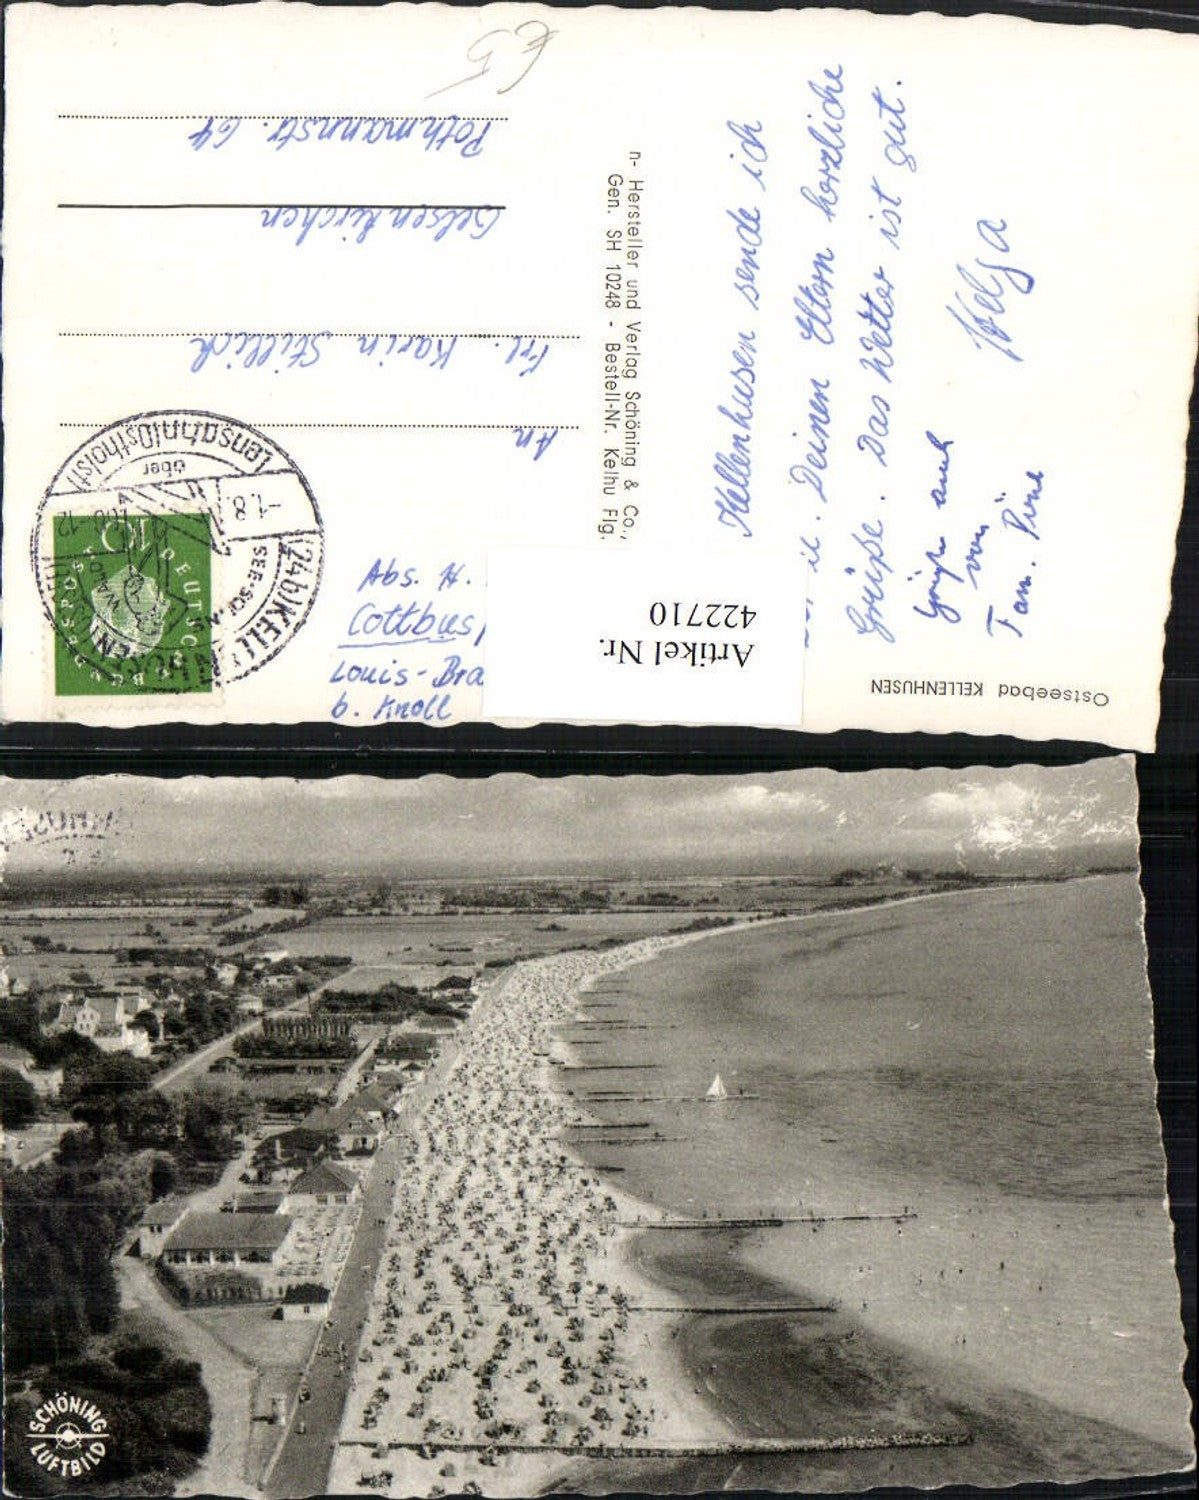 Ostseebad KELLENHUSEN
Kellenhusen sende ich
Deinen Eltern herzliche
Grüße. Das Wetter ist gut.
Helga
Grüße auch
von
Fam.
Hersteller und Verlag Schöning & Co.,
Gen. SH 10248 - Bestell-Nr. Kelhu Flg.
An
Frl. Karin Stillich
Gelsenkirchen
Pothmannstr. 64
Abs. H.
Cottbus
Louis-Bra
b. Knoll
Artikel Nr.
422710
(24b) KELLENHUSEN
über
Lensahn (Ostholst)
-1.8.
-12
WALD
DEUTSCHE BUNDESPOST
10
SCHÖNING
LUFTBILD